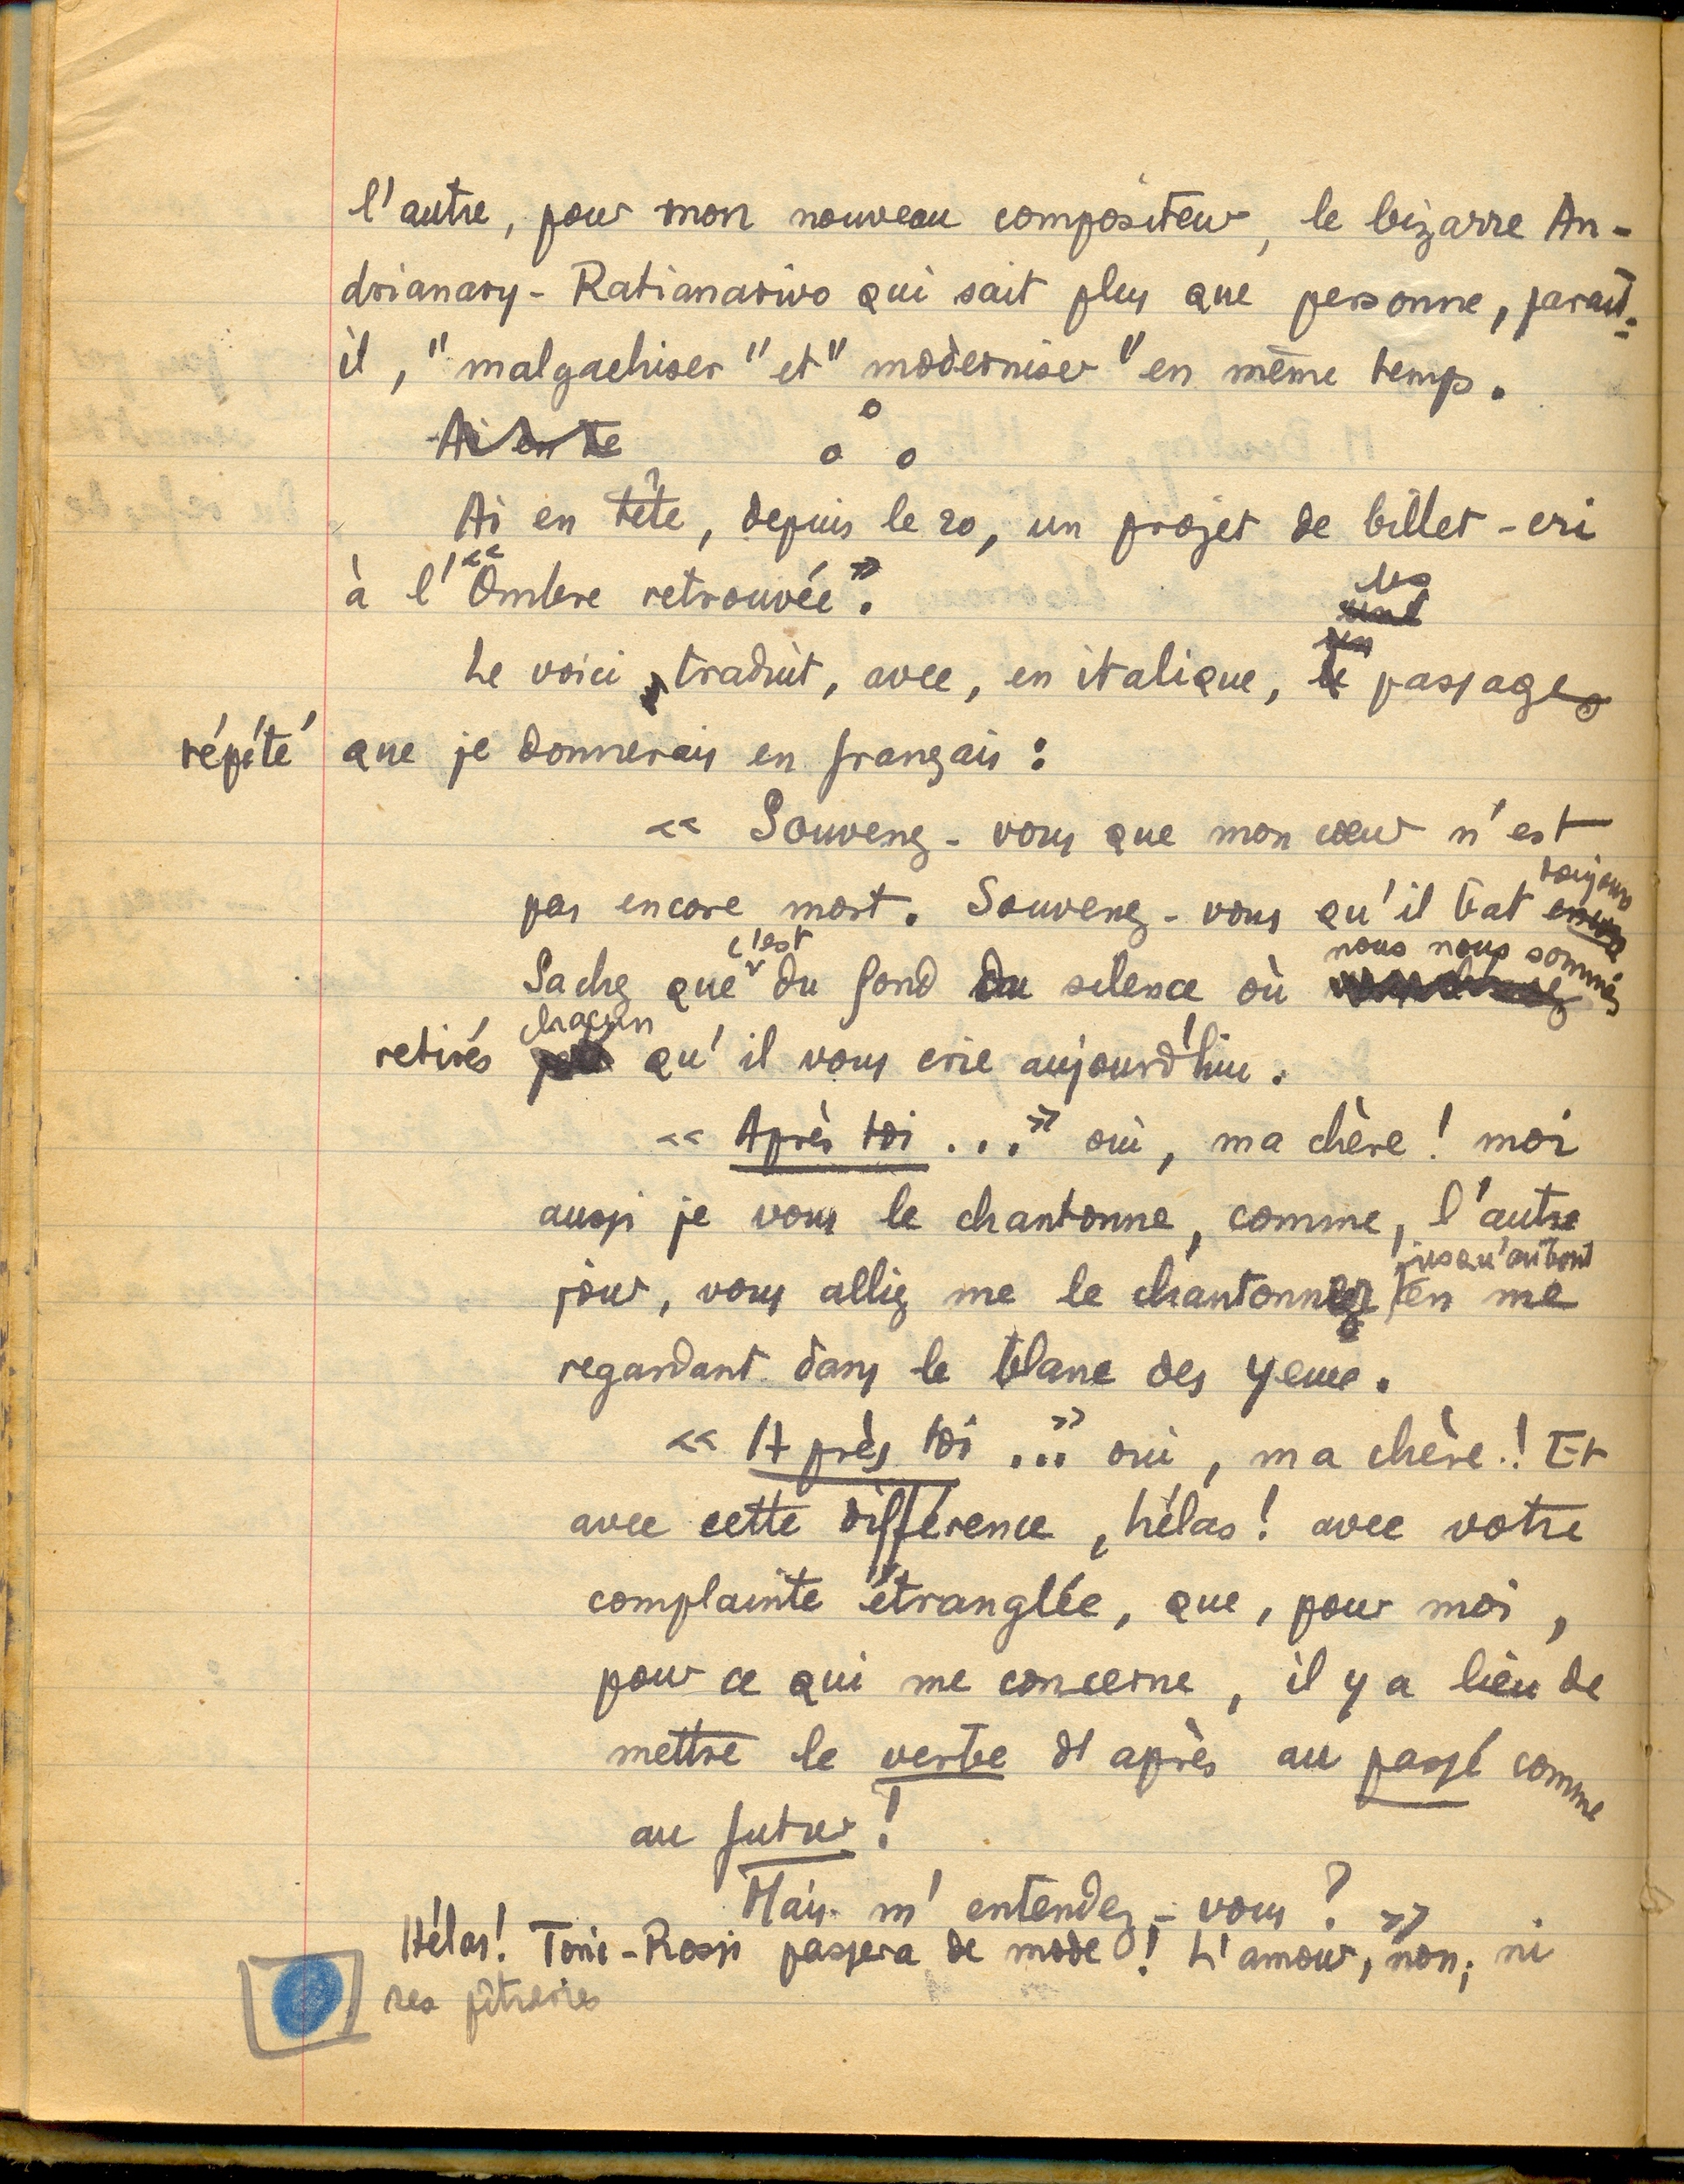 l'autre, pour mon nouveau compositeur, le bizarre An-
drianary-Ratianarivo qui sait plus que personne, paraît-
il, "malgachiser" et "moderniser" en même temps.
Ai en te
o
o o
Ai en tête, depuis le 20, un projet de billet-cri
à l'«Ombre retrouvée».
les
un
Le voici, traduit, avec, en italique, le passages
répété que je donnerais en français :
« Souvenez-vous que mon cœur n'est
toujours
pas encore mort. Souvenez-vous qu'il bat encore
c'est nous nous sommes
Sachez que du fond du silence où
chacun
retirés qu'il vous crie aujourd'hui.
« Après toi ...» oui, ma chère ! moi
aussi je vous le chantonne, comme, l'autre
jusqu'au bout
jour, vous alliez me le chantonner en me
regardant dans le blanc des yeux.
« Après toi ...» oui, ma chère ! Et
avec cette différence, hélas ! avec votre
complainte étranglée, que, pour moi,
pour ce qui me concerne, il y a lieu de
mettre le verbe d'après au passé comme
au futur !
Mais m'entendez-vous ? »
Hélas ! Toni-Rossi passera de mode ! L'amour, non; ni
ses pitreries